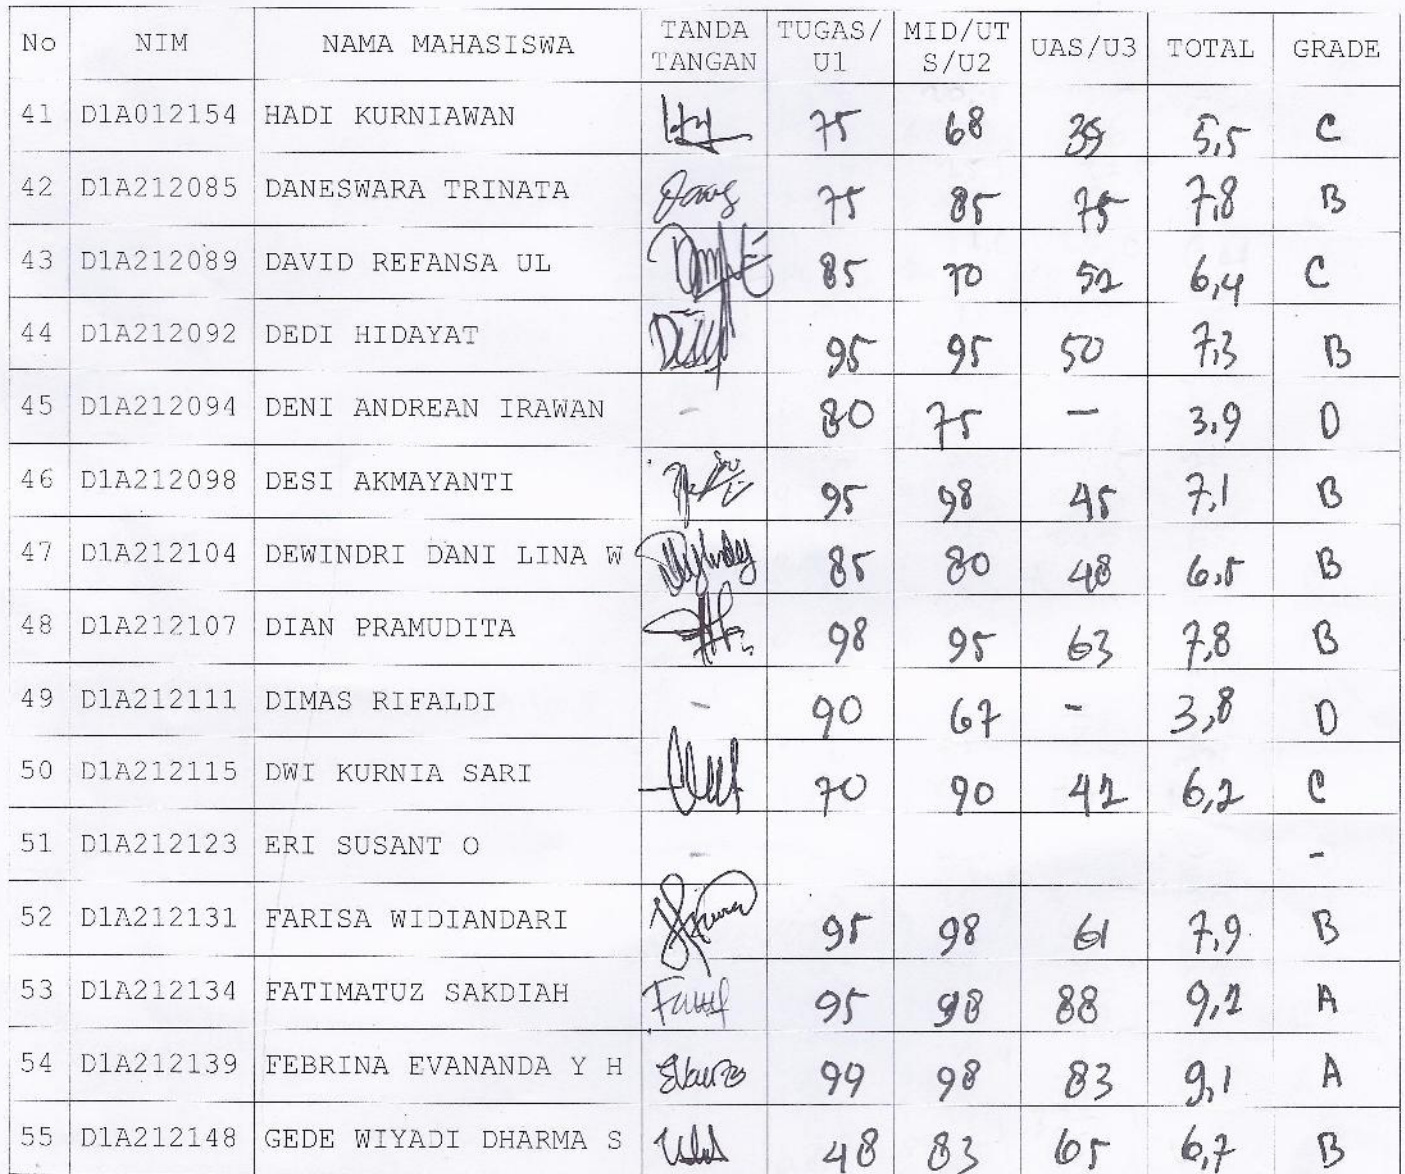 No NIM NAMA MAHASISWA TANDA TANGAN TUGAS/U1 MID/UTS/U2 UAS/U3 TOTAL GRADE
41 D1A012154 HADI KURNIAWAN 75 68 5,5 C
42 D1A212085 DANESWARA TRINATA 75 85 75 7,8 B
43 D1A212089 DAVID REFANSA UL 85 70 52 6,4 C
44 D1A212092 DEDI HIDAYAT 95 95 50 7,3 B
45 D1A212094 DENI ANDREAN IRAWAN - 80 75 - 3,9 D
46 D1A212098 DESI AKMAYANTI 95 98 45 7,1 B
47 D1A212104 DEWINDRI DANI LINA W 85 80 48 6,5 B
48 D1A212107 DIAN PRAMUDITA 98 95 63 7,8 B
49 D1A212111 DIMAS RIFALDI - 90 67 - 3,8 D
50 D1A212115 DWI KURNIA SARI 70 90 42 6,2 C
51 D1A212123 ERI SUSANT O - -
52 D1A212131 FARISA WIDIANDARI 95 98 61 7,9 B
53 D1A212134 FATIMATUZ SAKDIAH 95 98 88 9,2 A
54 D1A212139 FEBRINA EVANANDA Y H 99 98 83 9,1 A
55 D1A212148 GEDE WIYADI DHARMA S 48 83 65 6,7 B